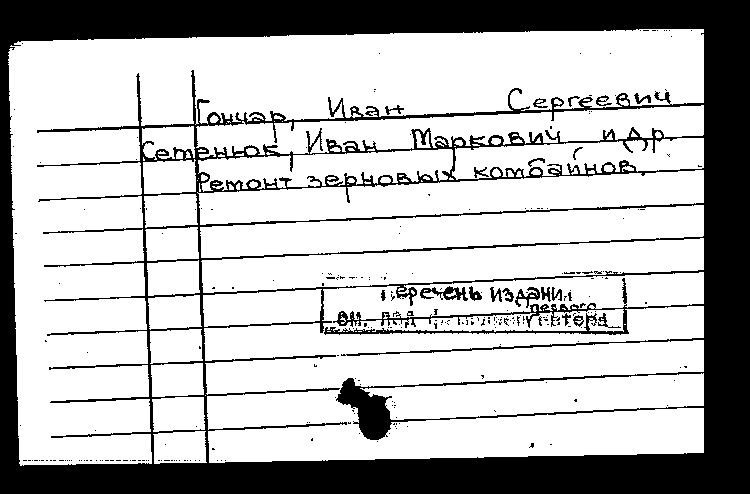 Гончар, Иван Сергеевич
Сетенюк, Иван Маркович, и др.
Ремонт зерновых комбайнов.
Перечень изданий
см. под фамилией первого автора